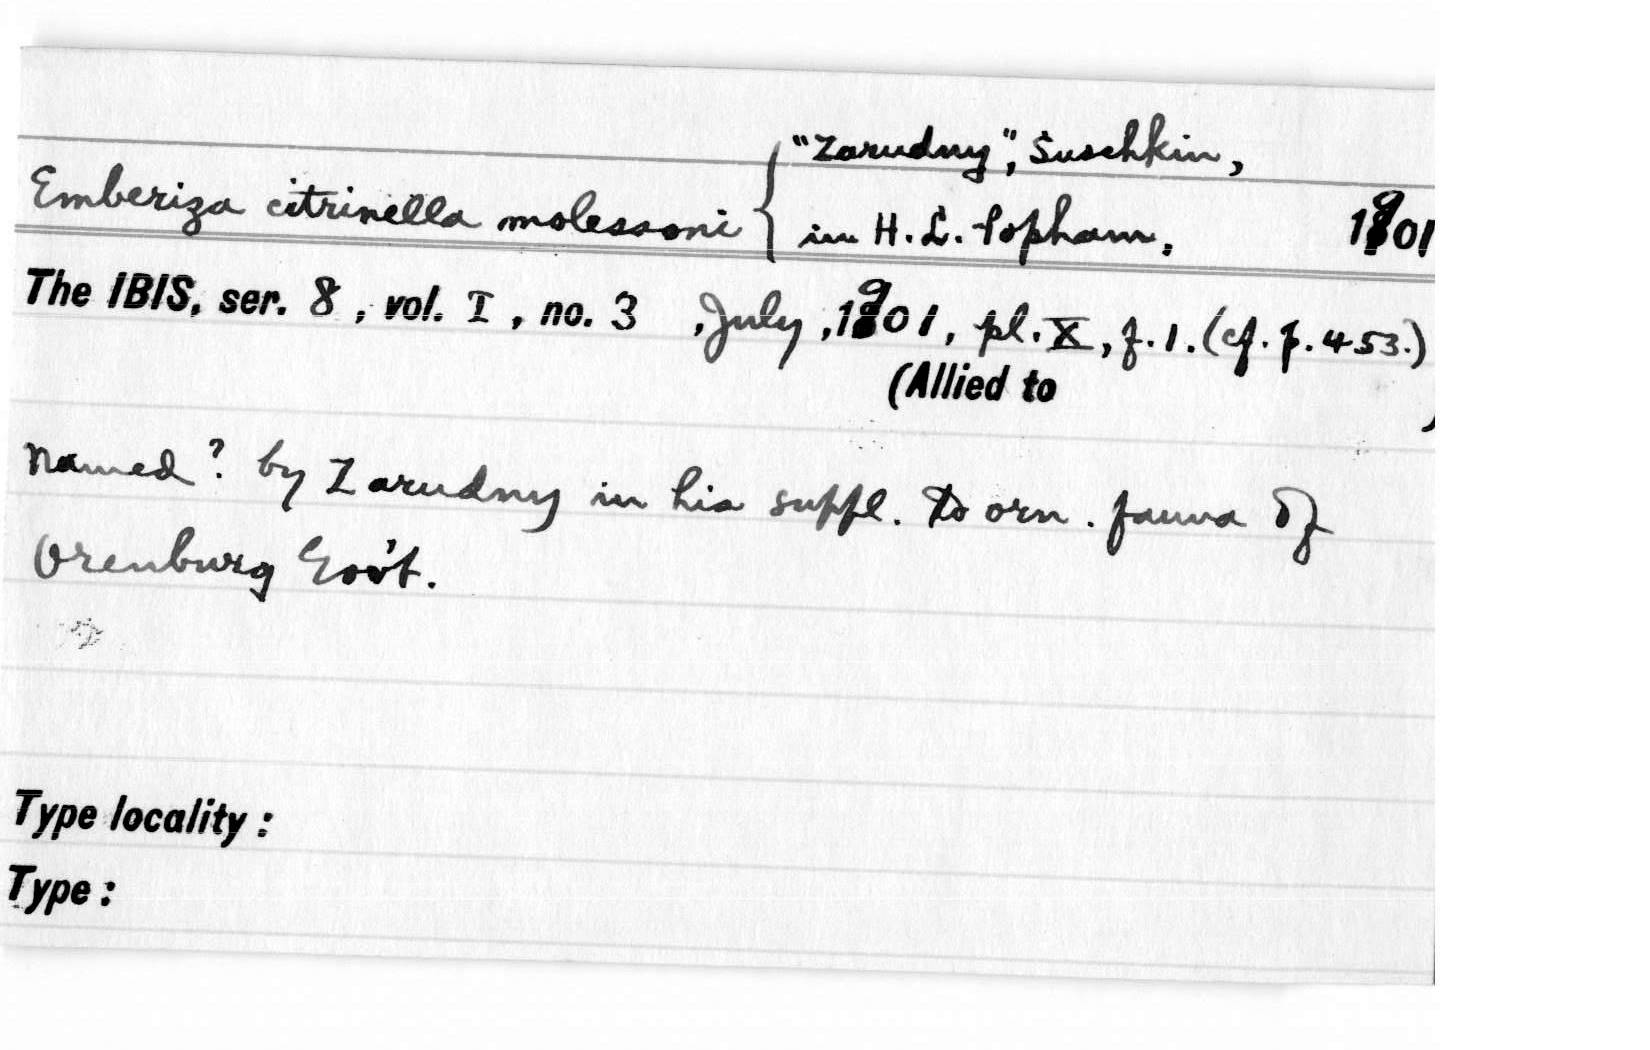 "Zarudny", Suschkin,
Emberiza citrinella molessoni { in H. L. Popham, 1901
The IBIS, ser. 8, vol. I, no. 3, July, 1901, pl. X, f. 1. (cf. p. 453.)
(Allied to )
Named? by Zarudny in his suppl. to orn. fauna of
Orenburg Gov't.
Type locality:
Type: